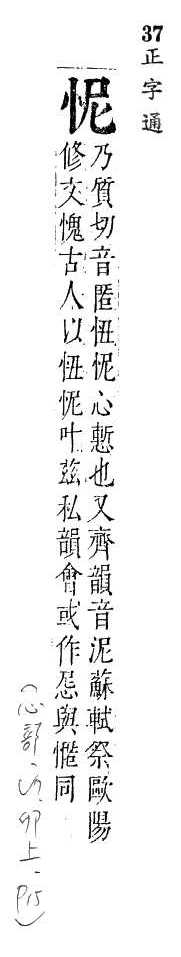 37正字通
怩
乃質切音匿忸怩心慙也又齊韻音泥蘇軾祭歐陽
修文愧古人以忸怩叶茲私韻會或作𢘝與慝同
(心部、卯上、P15)